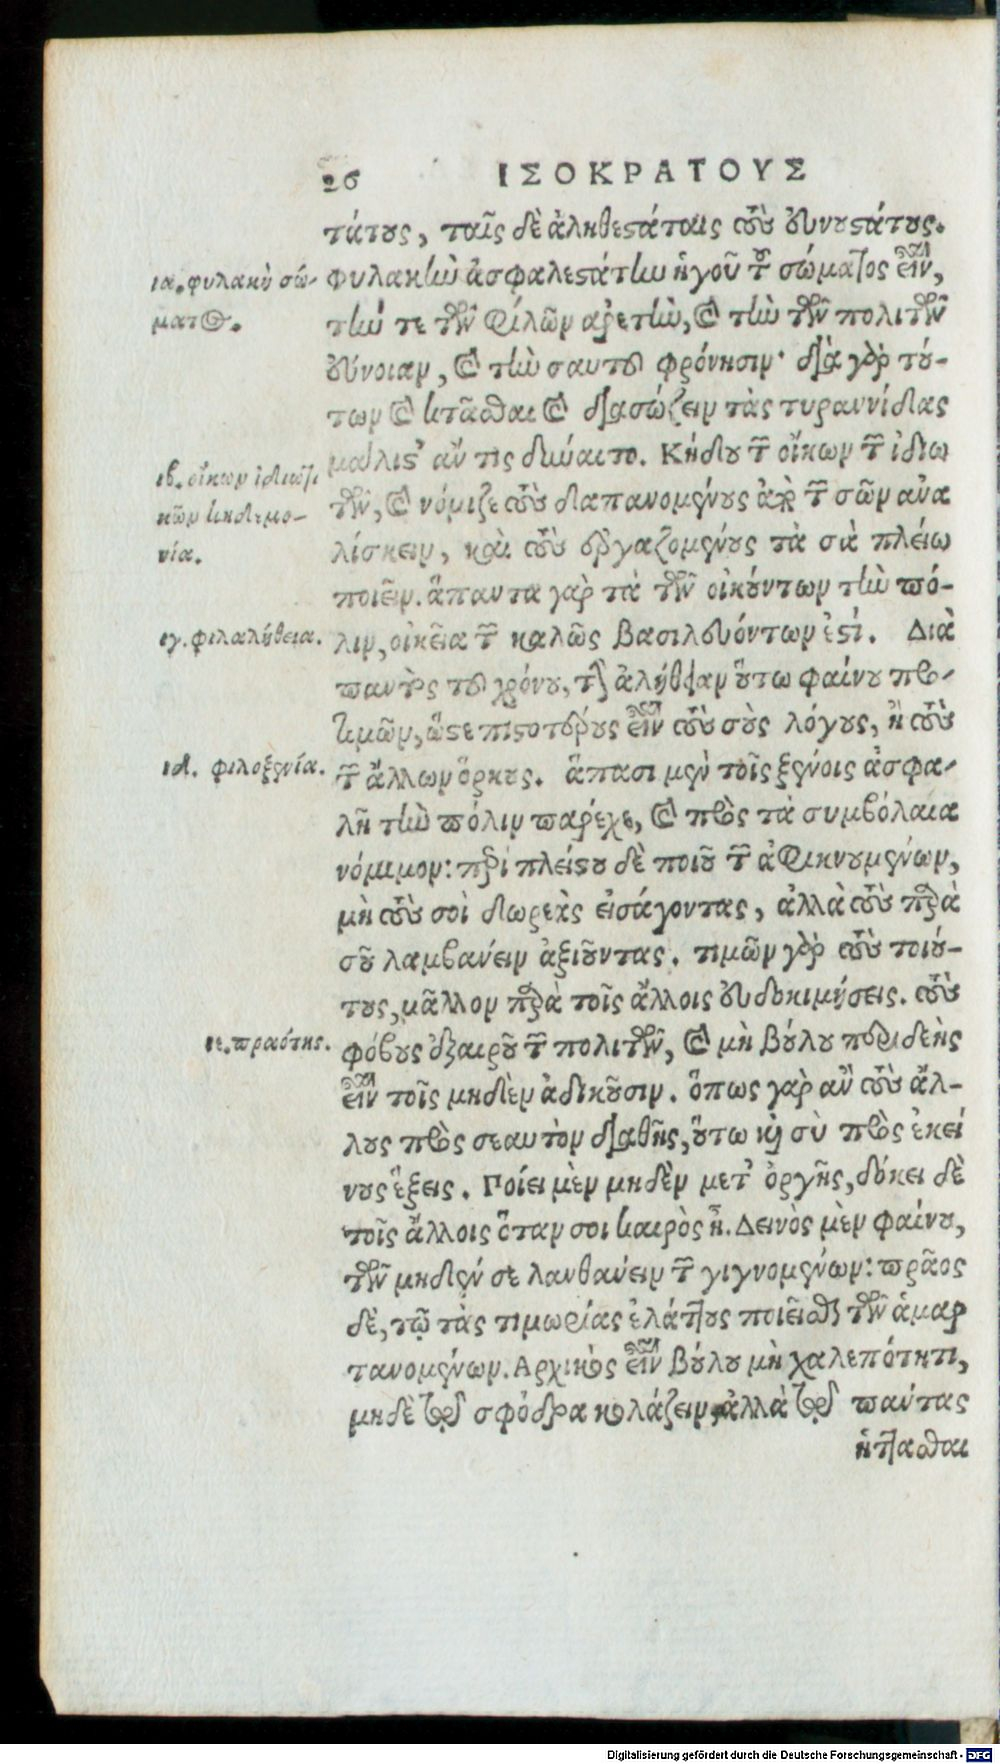 26 ΙΣΟΚΡΑΤΟΥΣ
τάτους, ταῖς δὲ ἀληθεστάταις τοὺς εὐνουστάτους.
ια. φυλακὴ σώ-
ματος.
φυλακὴν ἀσφαλεστάτην ἡγοῦ τοῦ σώματος εἶναι,
τήν τε τῶν φίλων ἀρετὴν, καὶ τὴν τῶν πολιτῶν
εὔνοιαν, καὶ τὴν σαυτοῦ φρόνησιν· διὰ γὰρ τού-
των καὶ κτᾶσθαι καὶ διασώζειν τὰς τυραννίδας
μάλιστ' ἄν τις δύναιτο. Κήδου τῶν οἴκων τῶν ἰδιω
ιβ. οἴκων ἰδιωτι
κῶν κηδεμο-
νία.
τῶν, καὶ νόμιζε τοὺς δαπανομένους ἀπὸ τῶν σῶν ἀνα
λίσκειν, καὶ τοὺς ἐργαζομένους τὰ σὰ πλείω
ποιεῖν. ἅπαντα γὰρ τὰ τῶν οἰκούντων τὴν πό-
ιγ. φιλαλήθεια.
λιν, οἰκεῖα τῶν καλῶς βασιλευόντων ἐστί. Διὰ
παντὸς τοῦ χρόνου, τὴν ἀλήθειαν οὕτω φαίνου προ-
τιμῶν, ὥστε πιστοτέρους εἶναι τοὺς σοὺς λόγους, ἢ τοὺς
ιδ. φιλοξενία.
τῶν ἄλλων ὅρκους. ἅπασι μὲν τοῖς ξένοις ἀσφα-
λῆ τὴν πόλιν πάρεχε, καὶ πρὸς τὰ συμβόλαια
νόμιμον: περὶ πλείστου δὲ ποιοῦ τῶν ἀφικνουμένων,
μὴ τοὺς σοὶ δωρεὰς εἰσάγοντας, ἀλλὰ τοὺς παρὰ
σοῦ λαμβάνειν ἀξιοῦντας. τιμῶν γὰρ τοὺς τοιού-
τους, μᾶλλον παρὰ τοῖς ἄλλοις εὐδοκιμήσεις. τοὺς
ιε. πραότης.
φόβους ἐξαιροῦ τῶν πολιτῶν, καὶ μὴ βούλου περιδεὴς
εἶναι τοῖς μηδὲν ἀδικοῦσιν. ὅπως γὰρ ἂν τοὺς ἄλ-
λους πρὸς σεαυτὸν διαθῇς, οὕτω καὶ σὺ πρὸς ἐκεί
νους ἕξεις. Ποίει μὲν μηδὲν μετ' ὀργῆς, δόκει δὲ
τοῖς ἄλλοις ὅταν σοι καιρὸς ᾖ. Δεινὸς μὲν φαίνου,
τῷ μηδέν σε λανθάνειν τῶν γιγνομένων: πρᾶος
δὲ, τῷ τὰς τιμωρίας ἐλάττους ποιεῖσθαι τῶν ἁμαρ
τανομένων. Αρχικὸς εἶναι βούλου μὴ χαλεπότητι,
μηδὲ τῷ σφόδρα κολάζειν, ἀλλὰ τῷ πάντας
ἡττᾶσθαι
Digitalisierung gefördert durch die Deutsche Forschungsgemeinschaft - DFG